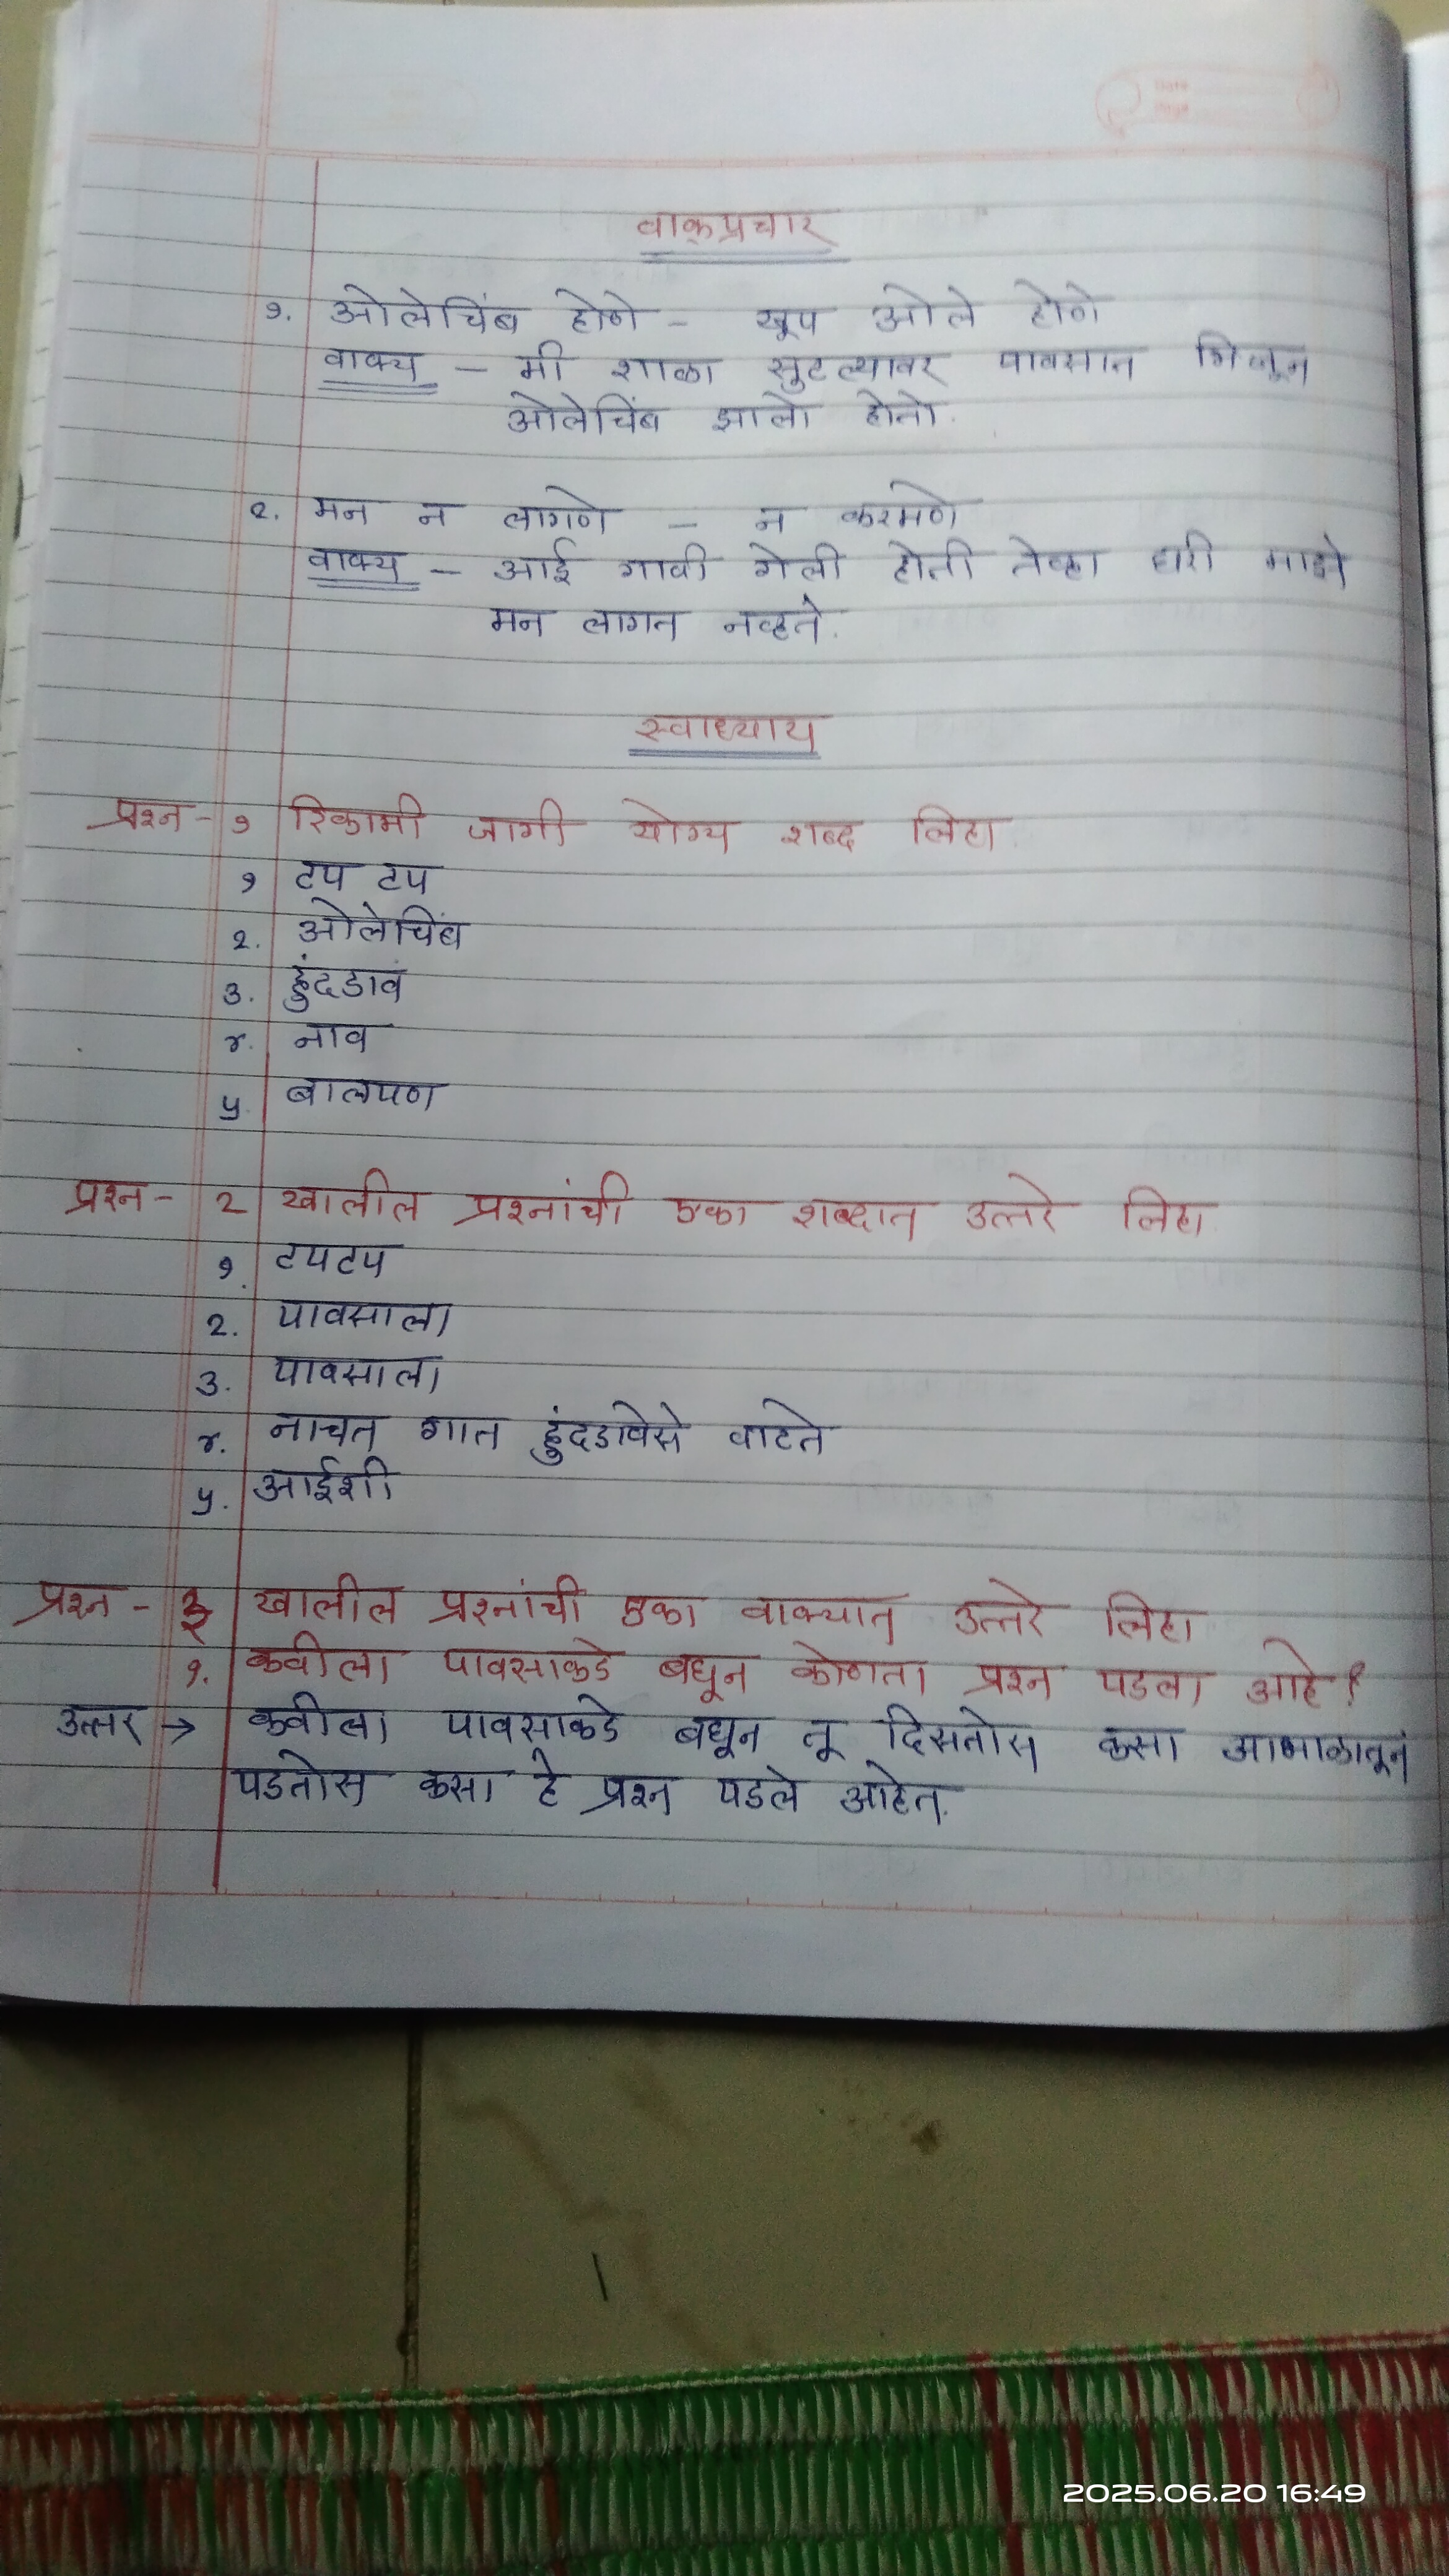 वाक्प्रचार
१. ओलेचिंब होणे - खूप ओले होणे
वाक्य - मी शाळा सुटल्यावर पावसात भिजून
ओलेचिंब झालो होतो.
२. मन न लागणे - न करमणे
वाक्य - आई गावी गेली होती तेव्हा घरी माझे
मन लागत नव्हते.
स्वाध्याय
प्रश्न - १ रिकामी जागी योग्य शब्द लिहा.
१ टप टप
२. ओलेचिंब
३. हुंदडावं
४. नाव
५. बालपण
प्रश्न - २ खालील प्रश्नांची एका शब्दात उत्तरे लिहा.
१. टपटप
२. पावसाला
३. पावसाला
४. नाचत गात हुंदडावेसे वाटते
५. आईशी
प्रश्न - ३ खालील प्रश्नांची एका वाक्यात उत्तरे लिहा
१. कवीला पावसाकडे बघून कोणता प्रश्न पडला आहे?
उत्तर → कवीला पावसाकडे बघून तू दिसतोस कसा आभाळातून
पडतोस कसा हे प्रश्न पडले आहेत.
2025.06.20 16:49